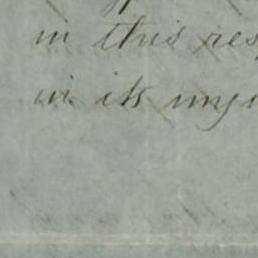 in this res
in its